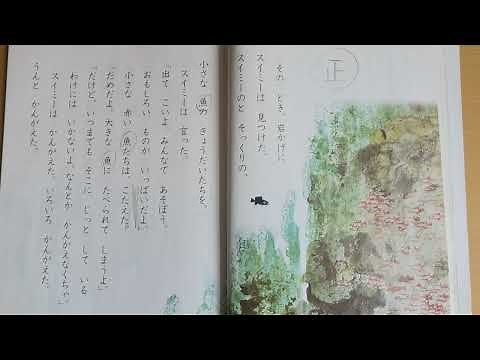 正
その とき、岩かげに
スイミーは 見つけた、
スイミーのと そっくりの、
小さな 魚の きょうだいたちを。
スイミーは 言った。
「出て こいよ。みんなで あそぼう。
おもしろい ものが いっぱいだよ。」
小さな 赤い 魚たちは、こたえた。
「だめだよ。大きな 魚に たべられて しまうよ。」
「だけど、いつまでも そこに じっと して いる
わけには いかないよ。なんとか かんがえなくちゃ。」
スイミーは かんがえた。いろいろ かんがえた。
うんと かんがえた。